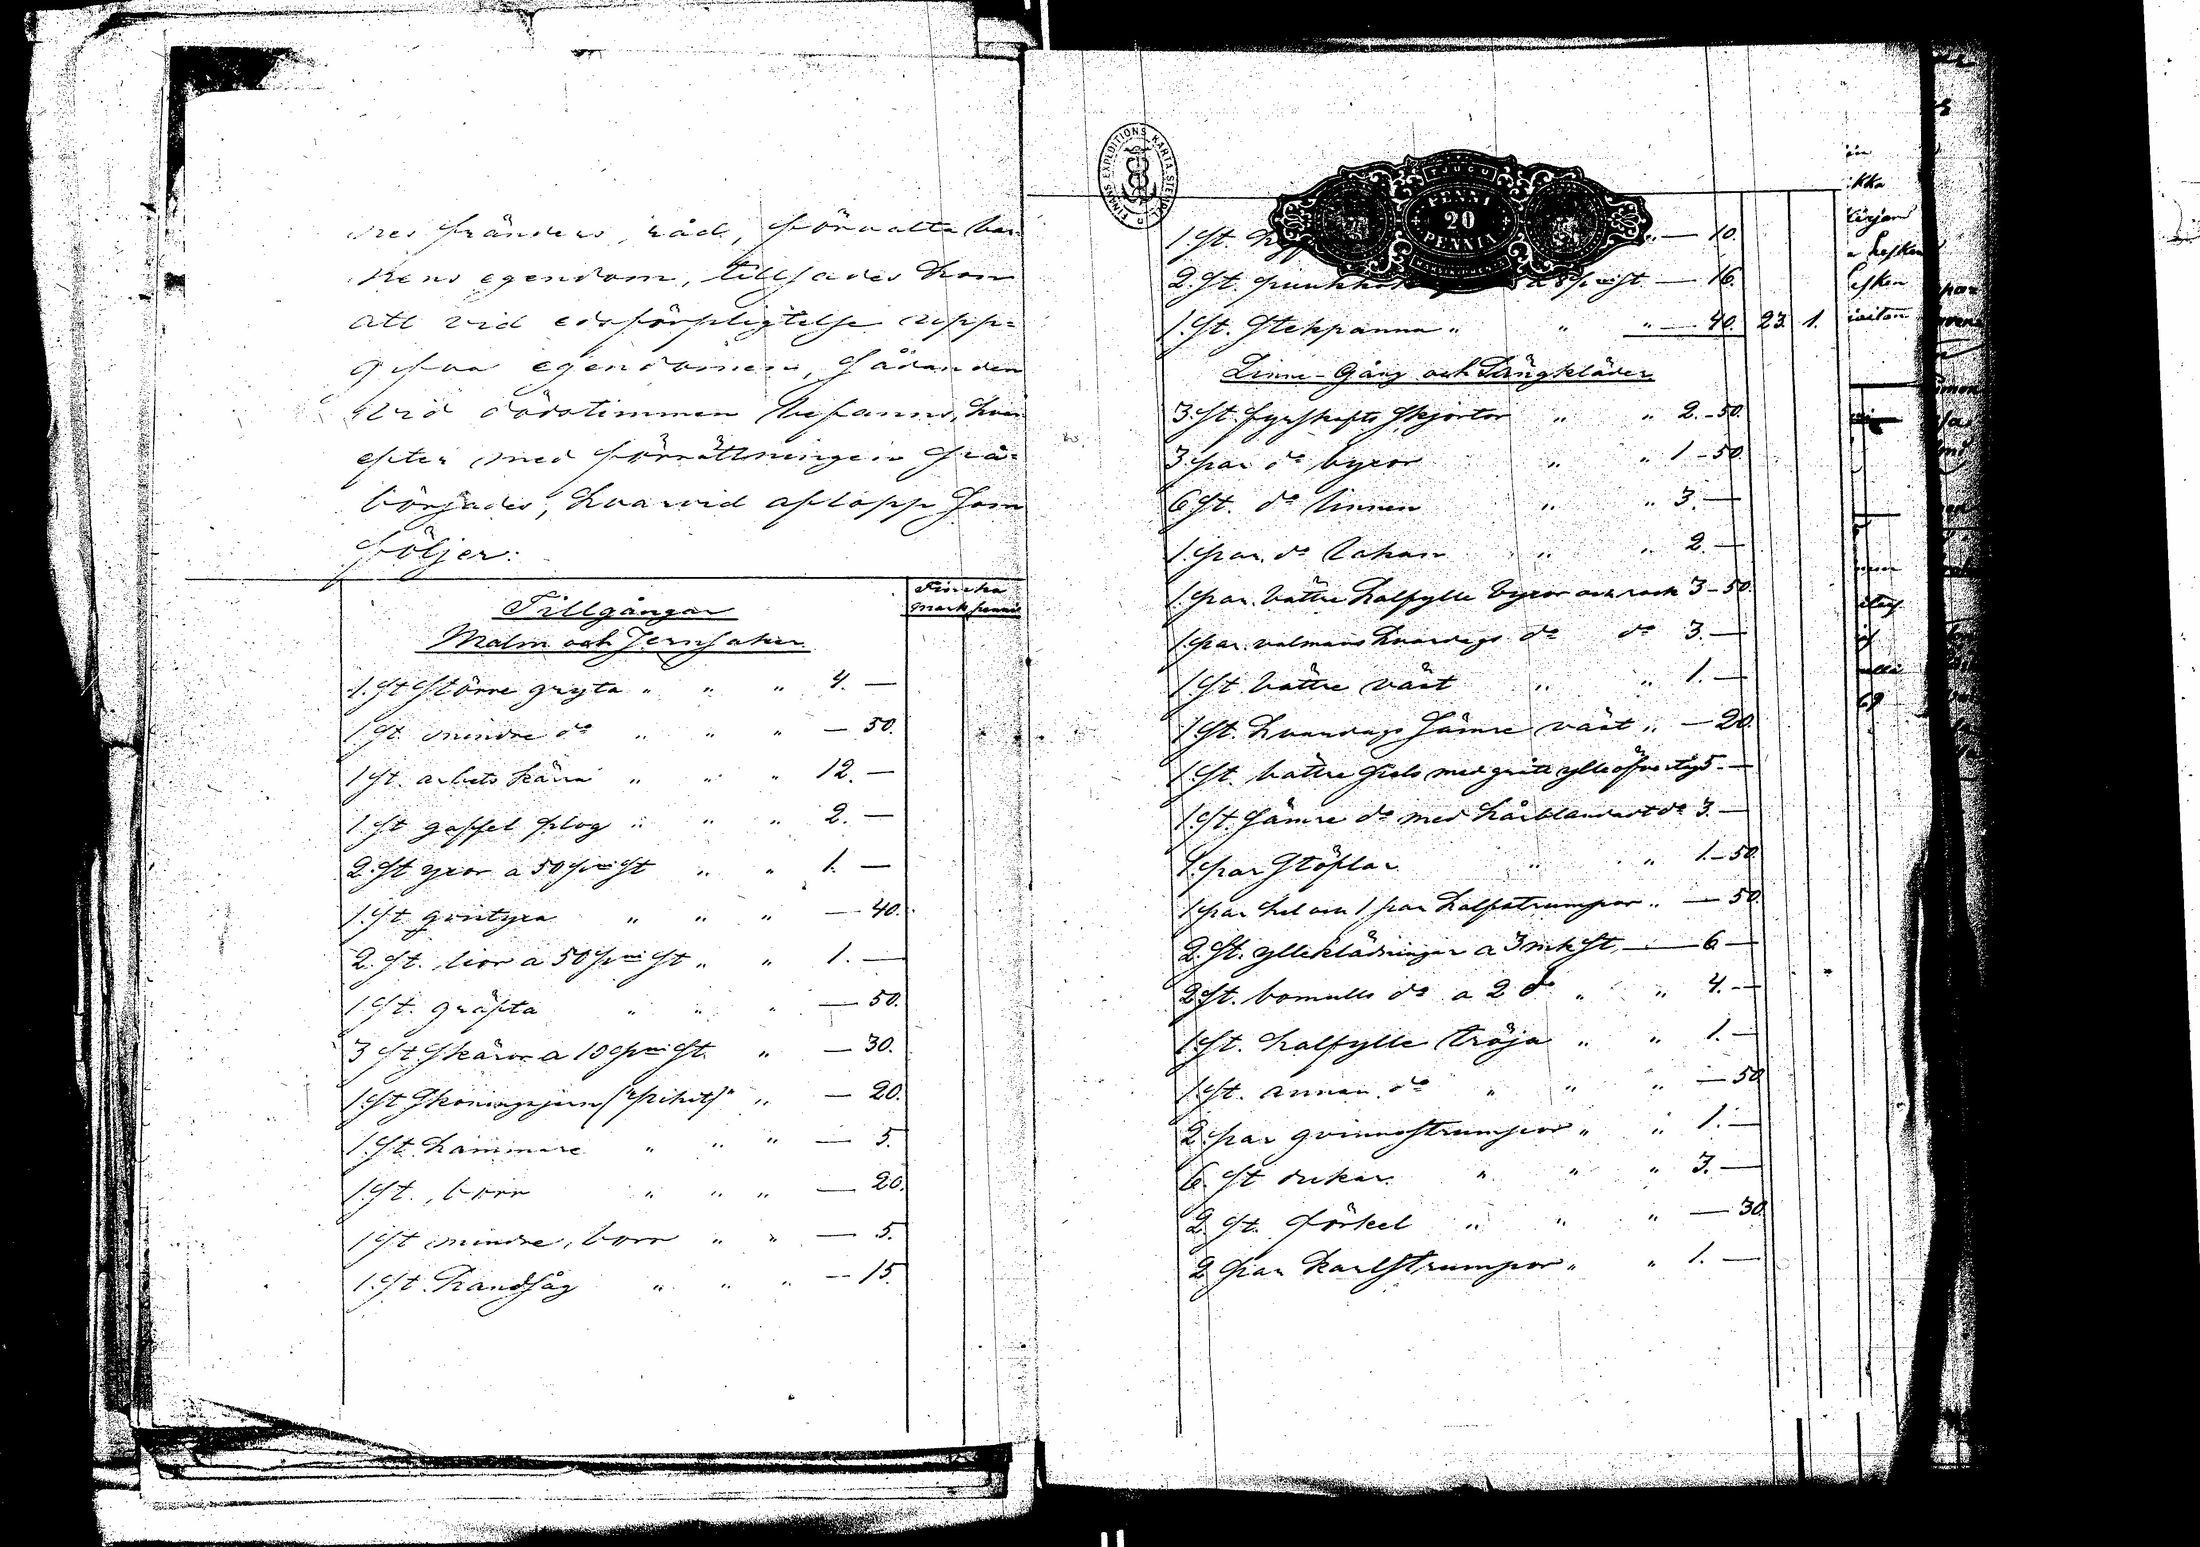 fränders råd, förvalta bar-
nens egendom, tillsades hon
att vid edsförpligtelse upp-
gifva egendomen, sådan den
vid dödstimmen befanns, hvar
efter med förrättningen på-
börjades, hvarvid aflopp som
följer:
Finska
mark penni
Tillgångar
Malm och Jernsaker
1 St Större gryta " " " 4. —
1 St. mindre do " " " — 50.
1 St. arbets kärra " " " 12. —
1 St gaffel plog " " " 2. —
2 St yxor a 50 pni St " " 1. —
1 St. " " " — 40.
2. St. lior a 50 pni St " " 1. —
1 St. gräfta " " " — 50.
3 St Skäror a 10 pni St. " — 30.
1 St Skoningsjern " — 20.
1 St. hammare " " " — 5.
1 St. borr " " " — 20.
1 St mindre borr " " — 5.
1. St. Handsåg " " " — 15.
FINANS EXPEDITIONS KARTA STEMPL.
TJUGU
PENNI
20
PENNIÄ
1. St. " — 10.
2. St. a 8 pni St. — 16.
1. St. Stekpanna " " " — 40. 23. 1.
Linne- Gång och Sängkläder
3 St. fyrskafts skjortor " " 2. — 50.
3 par do byxor " " 1 — 50.
6 St. do linnen " " 3. —
1. par. do lakan " " 2. —
1. par. bättre halfylle byxor och rock 3 — 50.
1. par. valmans hvardags do do 3. —
1 St. bättre väst " " 1. —
1 St. hvardags sämre väst " — 20.
1 St. bättre med ylle öfvertyg 5. —
1. St. sämre do med hårblandadt do 3. —
1 par Stöflar " " 1. — 50.
1 par hel och 1 par halfstrumpor " — 50.
2. St. ylleklädningar a 3 mk St. — 6 —
2 St. bomulls do a 2 do " " 4. —
1. St. halfylle tröja " " 1. —
1 St. annan do " " " — 50
2 par qvinnostrumpor " " 1. —
6. St dukar " " " 3. —
2 St. förkel " " " — 30
2 par karlstrumpor " " 1. —